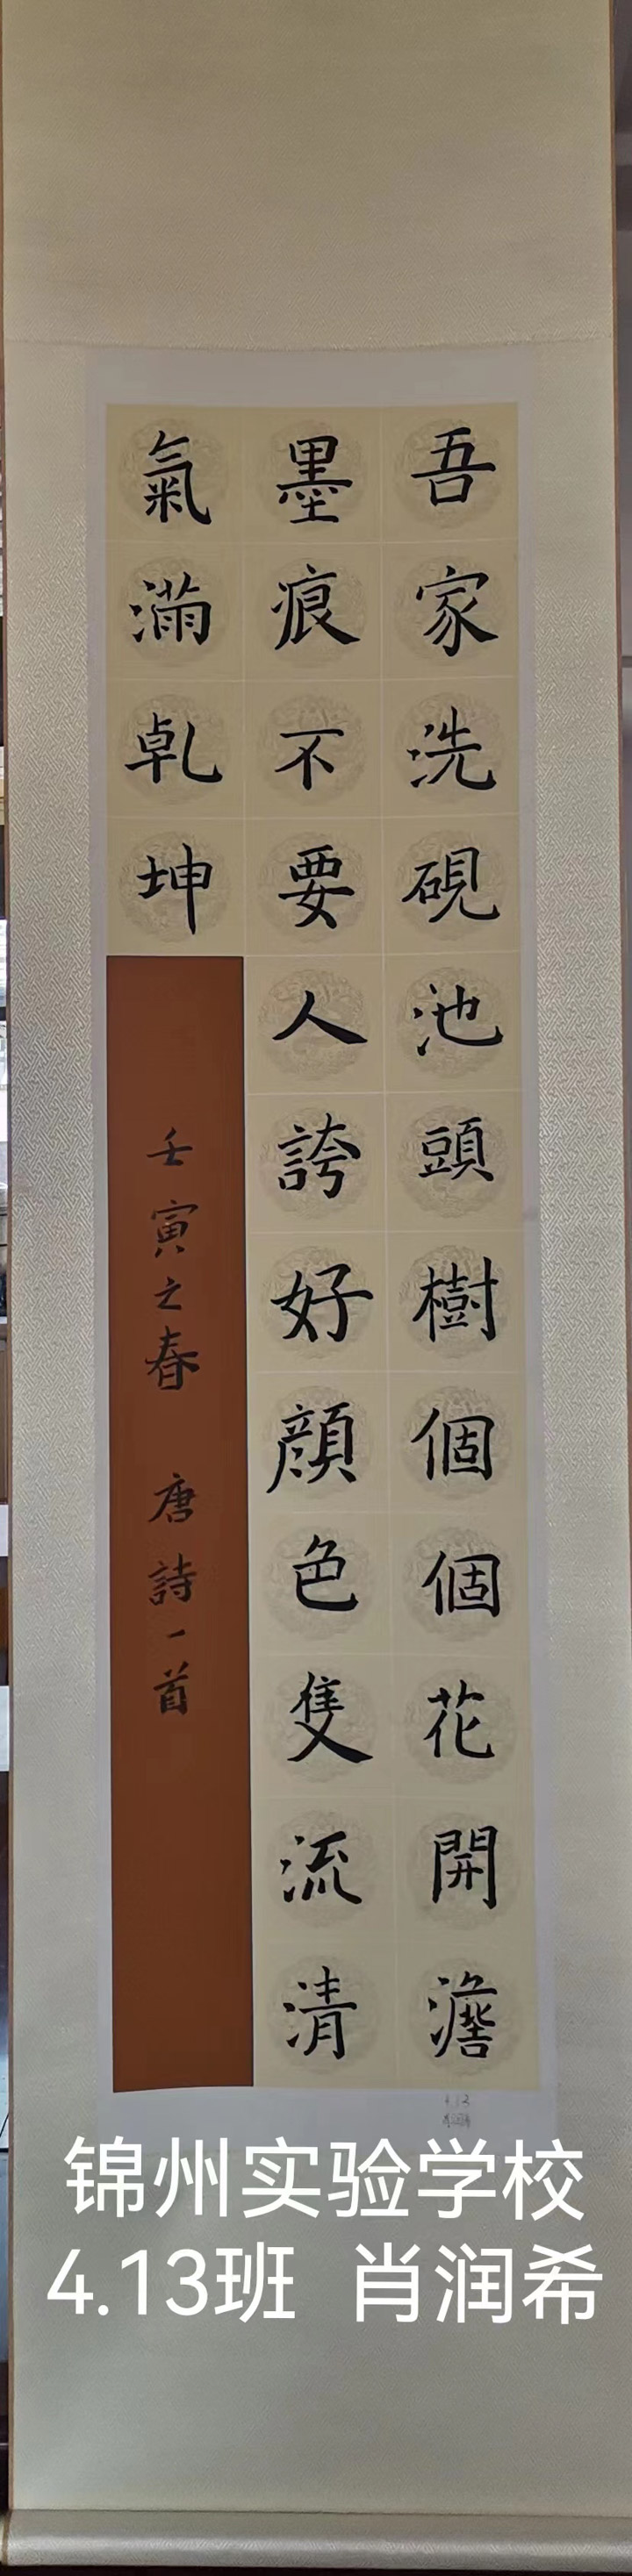 吾家洗硯池頭樹個個花開澹
墨痕不要人誇好顔色隻流清
氣滿乹坤
壬寅之春 唐詩一首
锦州实验学校
4.13班 肖润希